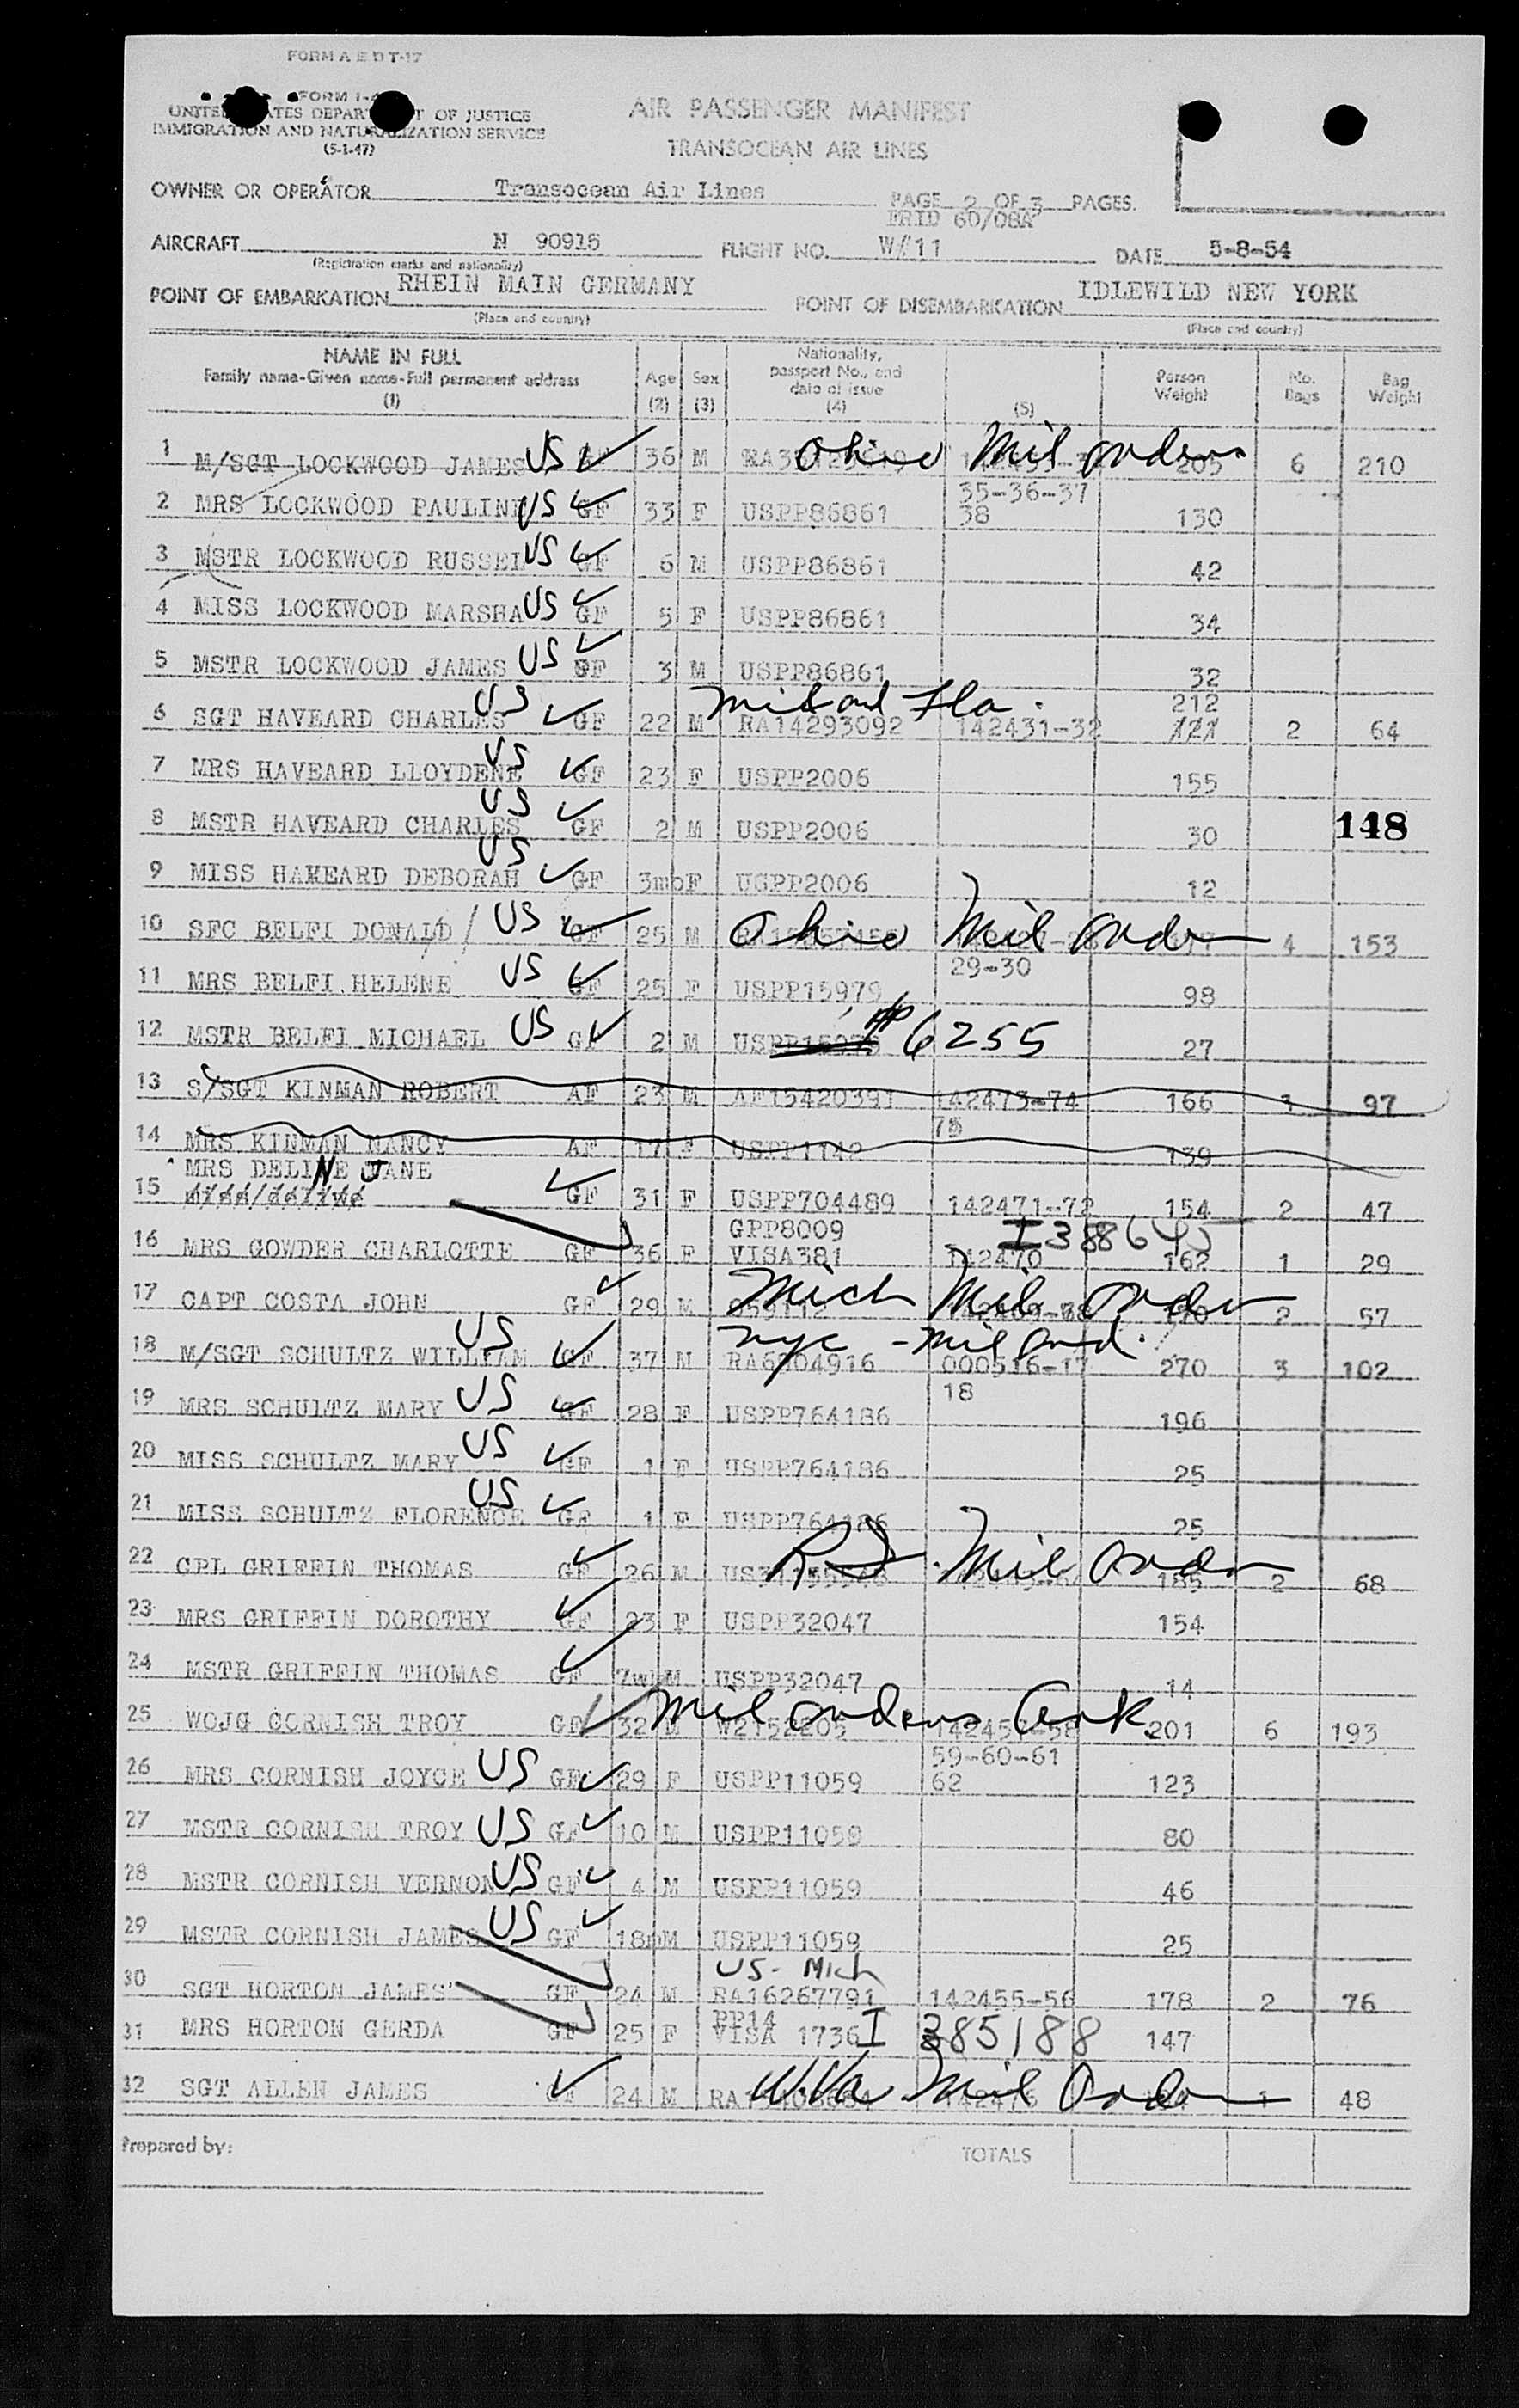 FORM A E D T-17
FORM I-4
UNITED STATES DEPARTMENT OF JUSTICE
IMMIGRATION AND NATURALIZATION SERVICE
(5-1-47)
AIR PASSENGER MANIFEST
TRANSOCEAN AIR LINES
OWNER OR OPERATOR Transocean Air Lines PAGE 2 OF 3 PAGES.
60/08A
AIRCRAFT N 90915 FLIGHT NO. W/11 DATE 5-8-54
(Registration marks and nationality)
POINT OF EMBARKATION RHEIN MAIN GERMANY POINT OF DISEMBARKATION IDLEWILD NEW YORK
(Place and country) (Place and country)
NAME IN FULL Family name-Given name-Full permanent address (1) Age (2) Sex (3) Nationality, passport No., and date of issue (4) (5) Person Weight No. Bags Bag Weight
1 M/SGT LOCKWOOD JAMES US ✓ 36 M Ohio Mil orders 205 6 210
35-36-37
2 MRS LOCKWOOD PAULINE US ✓ GF 33 F USPP86861 38 130
3 MSTR LOCKWOOD RUSSEL US ✓ GF 6 M USPP86861 42
4 MISS LOCKWOOD MARSHA US ✓ GF 5 F USPP86861 34
5 MSTR LOCKWOOD JAMES US ✓ GF 3 M USPP86861 32
US Mil ord Fla. 212
6 SGT HAVEARD CHARLES ✓ GF 22 M RA14293092 142431-32 121 2 64
7 MRS HAVEARD LLOYDENE US ✓ GF 23 F USPP2006 155
8 MSTR HAVEARD CHARLES US ✓ GF 2 M USPP2006 30 148
9 MISS HAKEARD DEBORAH US ✓ GF 3mo F USPP2006 12
10 SFC BELFI DONALD US ✓ GF 25 M Ohio Mil order 4 153
29-30
11 MRS BELFI HELENE US ✓ GF 25 F USPP15979 98
12 MSTR BELFI MICHAEL US GF ✓ 2 M USPP15979 PP 6255 27
13 S/SGT KINMAN ROBERT AF 23 M AF15420391 142473-74 166 3 97
75
14 MRS KINMAN NANCY AF 17 F USPP1142 139
MRS DELINE JANE
15 ✓ GF 31 F USPP704489 142471-72 154 2 47
GPP8009 I388645
16 MRS GOWDER CHARLOTTE GF 36 F VISA381 142470 162 1 29
17 CAPT COSTA JOHN GF ✓ 29 M Mich Mil order 2 57
US nyc - mil ord.
18 M/SGT SCHULTZ WILLIAM ✓ GF 37 M RA6904916 000516-17 270 3 102
18
19 MRS SCHULTZ MARY US ✓ GF 28 F USPP764186 196
20 MISS SCHULTZ MARY US ✓ GF 1 F USPP764186 25
21 MISS SCHULTZ FLORENCE US ✓ GF 1 F USPP764186 25
22 CPL GRIFFIN THOMAS GF ✓ 26 M R.I. Mil order 185 2 68
23 MRS GRIFFIN DOROTHY ✓ GF 23 F USPP32047 154
24 MSTR GRIFFIN THOMAS ✓ GF 7wk M USPP32047 14
25 WOJG CORNISH TROY GF ✓ 32 M Mil orders Ark W2152205 142457-58 201 6 193
59-60-61
26 MRS CORNISH JOYCE US GF ✓ 29 F USPP11059 62 123
27 MSTR CORNISH TROY US GF ✓ 10 M USPP11059 80
28 MSTR CORNISH VERNON US GF ✓ 4 M USPP11059 46
29 MSTR CORNISH JAMES US GF ✓ 18m M USPP11059 25
US- Mich
30 SGT HORTON JAMES GF 24 M RA16267791 142455-56 178 2 76
PP14
31 MRS HORTON GERDA GF 25 F VISA 1736 I 385188 147
32 SGT ALLEN JAMES ✓ GF 24 M W.Va Mil Order 142476 1 48
Prepared by: TOTALS